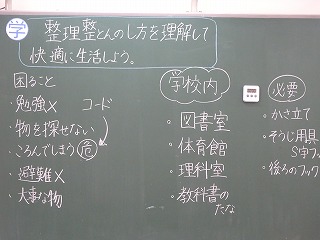 学 整理整とんのし方を理解して
快適に生活しよう。
困ること
・勉強× コード
・物を探せない
・ころんでしまう 危
・避難×
・大事な物
学校内
・図書室
・体育館
・理科室
・教科書の
たな
必要
・かさ立て
・そうじ用具
S字フッ
・後ろのフック